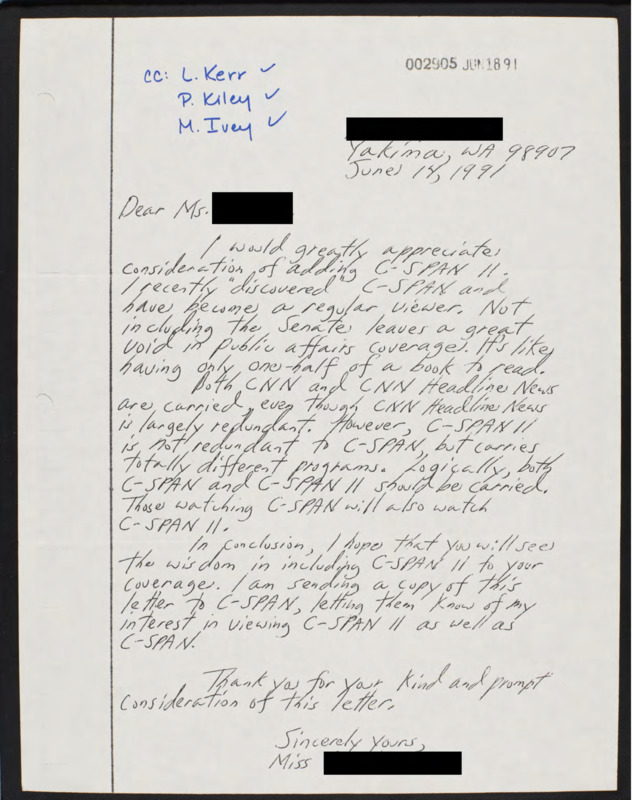 002905 JUN 18 91
cc: L. Kerr ✓
P. Kiley ✓
M. Ivey ✓
Yakima, WA 98907
June 14, 1991
Dear Ms.
I would greatly appreciate
consideration of adding C-SPAN II.
I recently "discovered" C-SPAN and
have become a regular viewer. Not
including the Senate leaves a great
void in public affairs coverage. It's like
having only one-half of a book to read.
Both CNN and CNN Headline News
are carried, even though CNN Headline News
is largely redundant. However, C-SPAN II
is not redundant to C-SPAN, but carries
totally different programs. Logically, both
C-SPAN and C-SPAN II should be carried.
Those watching C-SPAN will also watch
C-SPAN II.
In conclusion, I hope that you will see
the wisdom in including C-SPAN II to your
coverage. I am sending a copy of this
letter to C-SPAN, letting them know of my
interest in viewing C-SPAN II as well as
C-SPAN.
Thank you for your kind and prompt
consideration of this letter.
Sincerely yours,
Miss